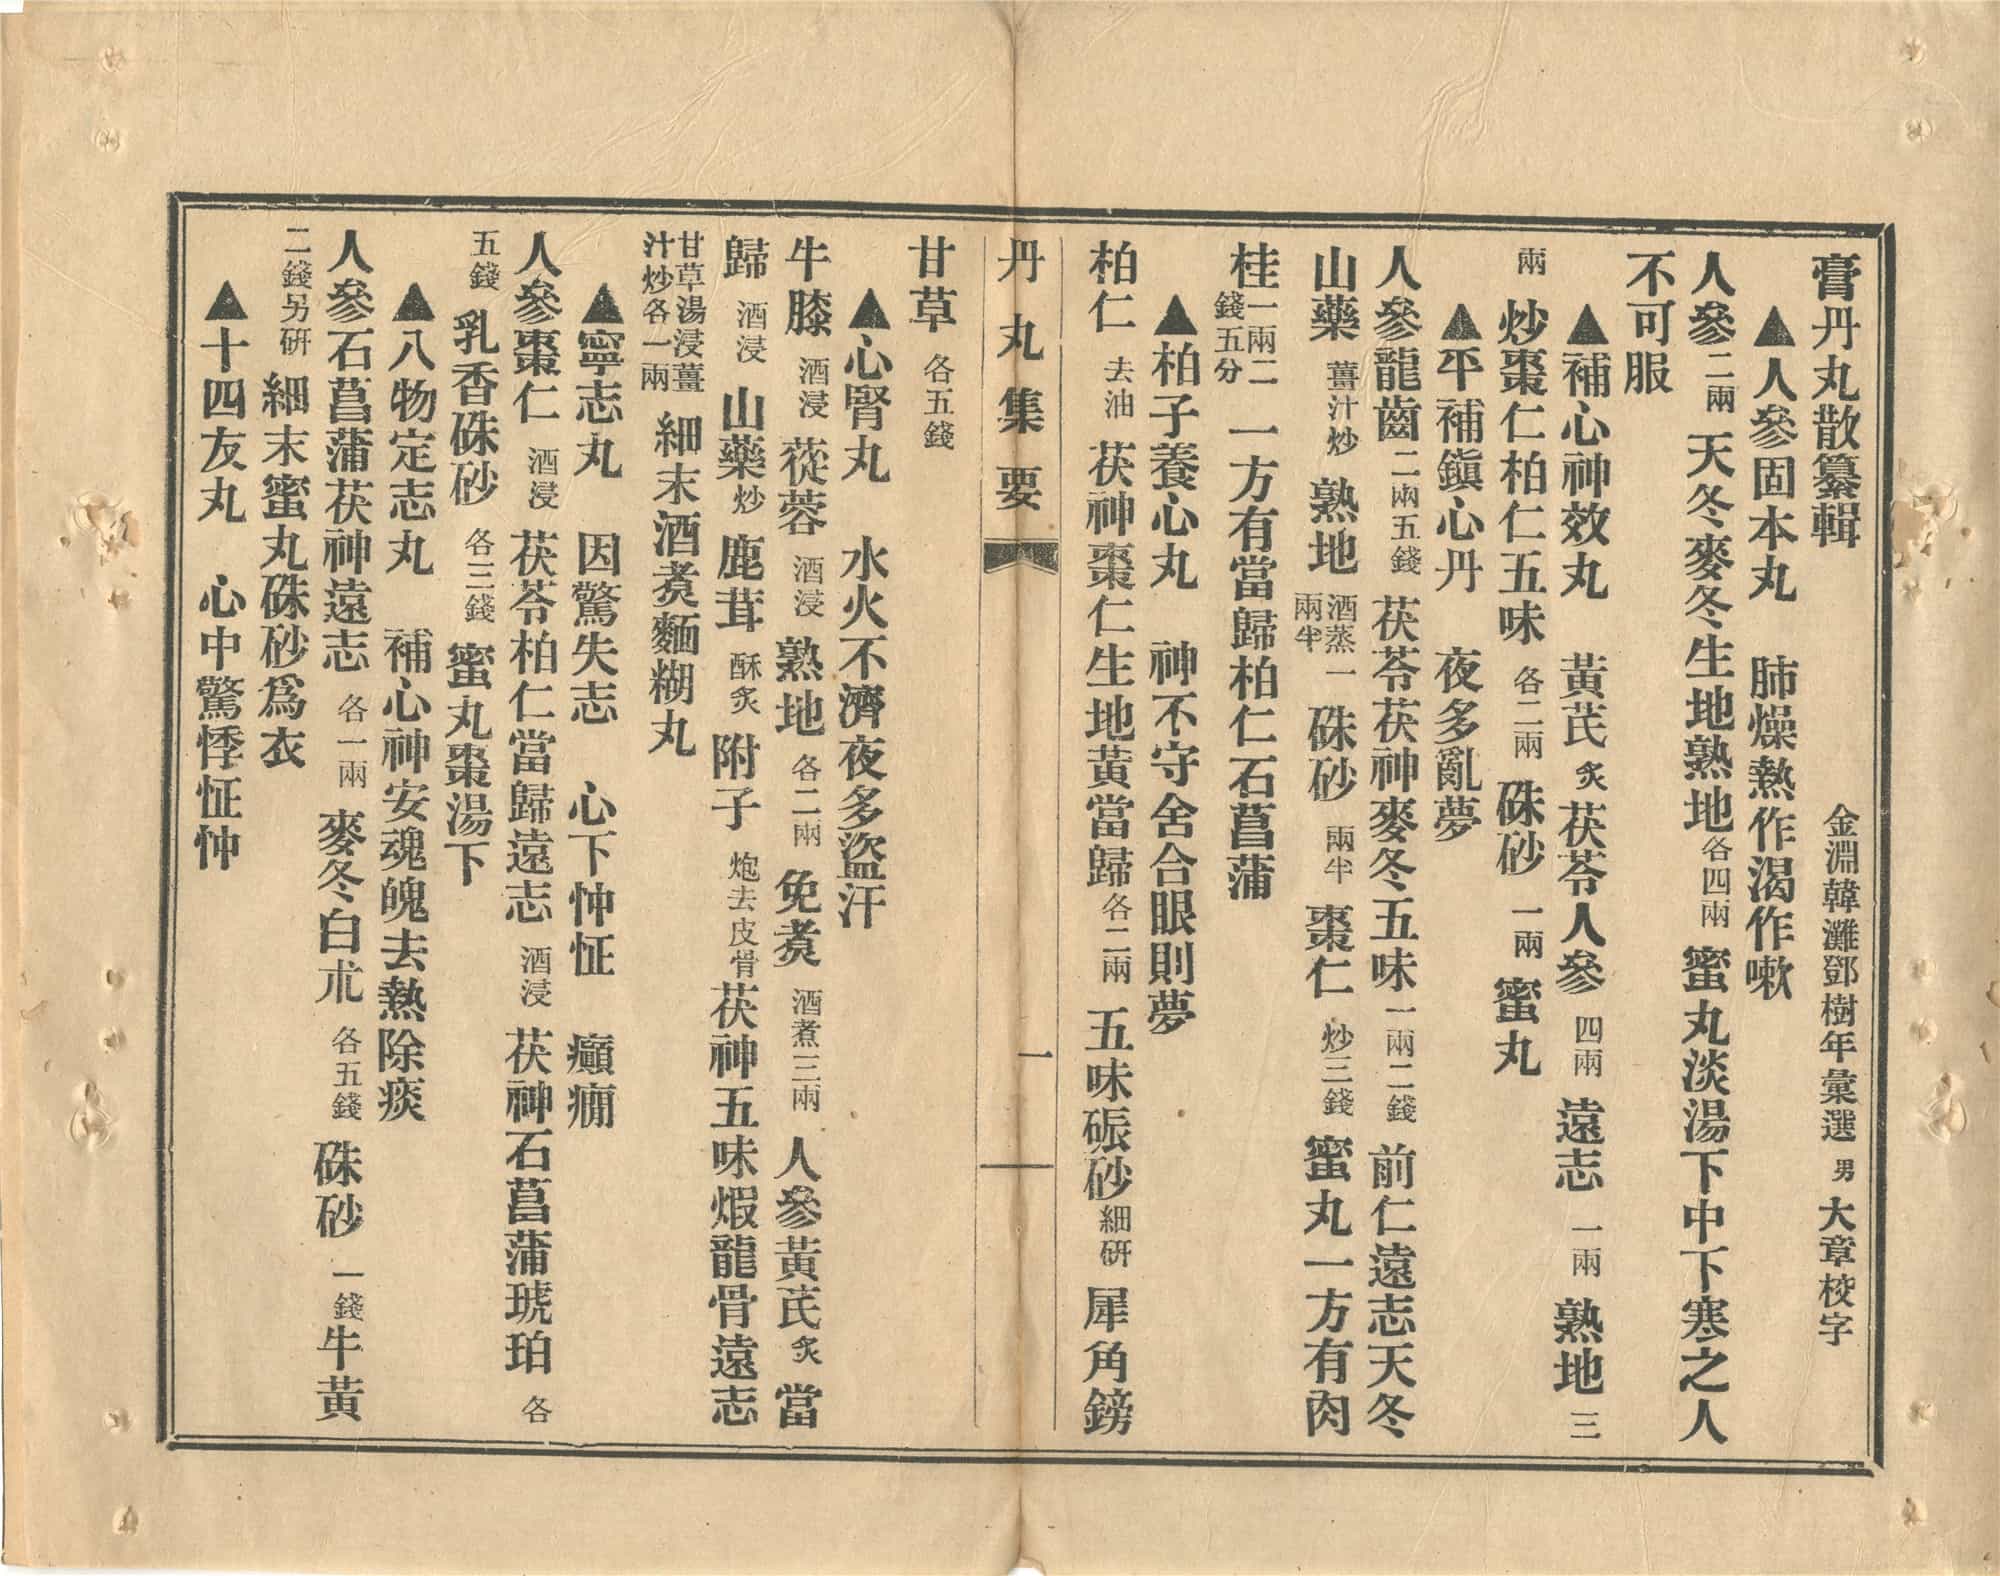 膏丹丸散纂輯　金淵韓灘鄧樹年彙選　男大章校字
▲人參固本丸　肺燥熱作渴作嗽
人參二兩天冬麥冬生地熟地各四兩蜜丸淡湯下中下寒之人
不可服
▲補心神效丸　黃芪炙茯苓人參四兩遠志一兩熟地三
兩炒棗仁柏仁五味各二兩硃砂一兩蜜丸
▲平補鎮心丹　夜多亂夢
人參龍齒二兩五錢茯苓茯神麥冬五味一兩二錢前仁遠志天冬
山藥薑汁炒熟地酒蒸一兩半硃砂兩半棗仁炒三錢蜜丸一方有肉
桂一兩二錢五分一方有當歸柏仁石菖蒲
▲柏子養心丸　神不守舍合眼則夢
柏仁去油茯神棗仁生地黃當歸各二兩五味硃砂細研犀角鎊
丹丸集要　一
甘草各五錢
▲心腎丸　水火不濟夜多盜汗
牛膝酒浸蓯蓉酒浸熟地各二兩免煑酒煮三兩人參黃芪炙當
歸酒浸山藥炒鹿茸酥炙附子炮去皮骨茯神五味煆龍骨遠志
甘草湯浸薑汁炒各一兩細末酒煑麵糊丸
▲寧志丸　因驚失志　心下忡怔　癲癇
人參棗仁酒浸茯苓柏仁當歸遠志酒浸茯神石菖蒲琥珀各
五錢乳香硃砂各三錢蜜丸棗湯下
▲八物定志丸　補心神安魂魄去熱除痰
人參石菖蒲茯神遠志各一兩麥冬白朮各五錢硃砂一錢牛黃
二錢另研細末蜜丸硃砂爲衣
▲十四友丸　心中驚悸怔忡